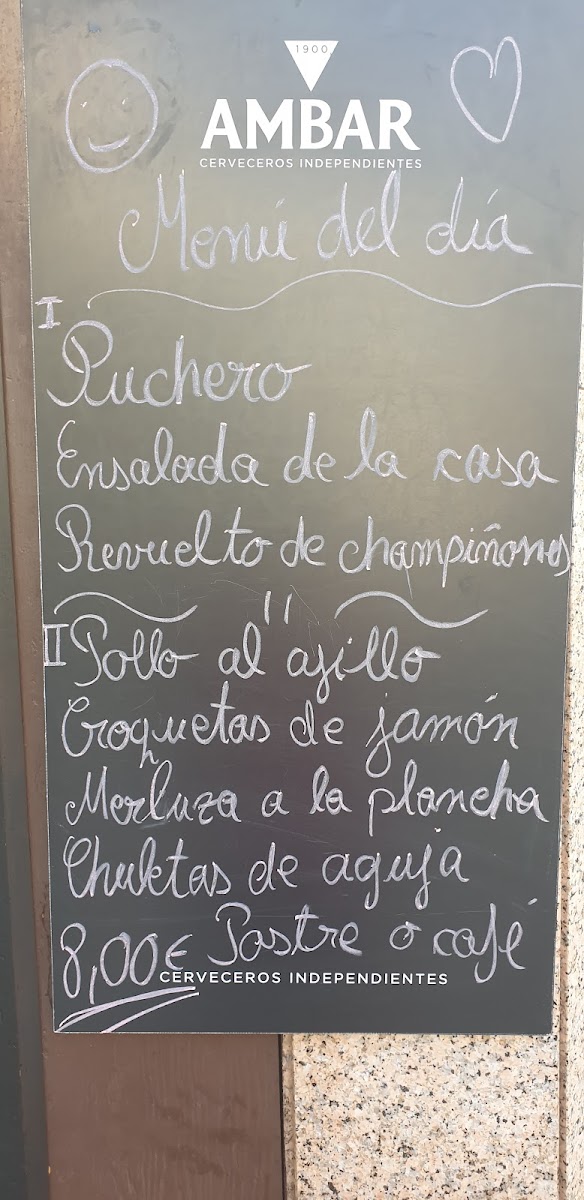 1900
AMBAR
CERVECEROS INDEPENDIENTES
Menú del día
I
Puchero
Ensalada de la casa
Revuelto de champiñones
II
Pollo al ajillo
Croquetas de jamón
Merluza a la plancha
Chuletas de aguja
8,00€ Postre o café
CERVECEROS INDEPENDIENTES